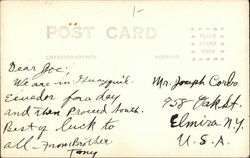 1-
POST CARD
PLACE
STAMP
HERE
CORRESPONDENCE
ADDRESS
Dear Joe;
We are in Guayquil-
Ecuador for a day
and then Proceed South.
Best of luck to
all - from Brother
Tony
Mr. Joseph Corbo
958 Oak St.
Elmira N.Y
U.S.A.